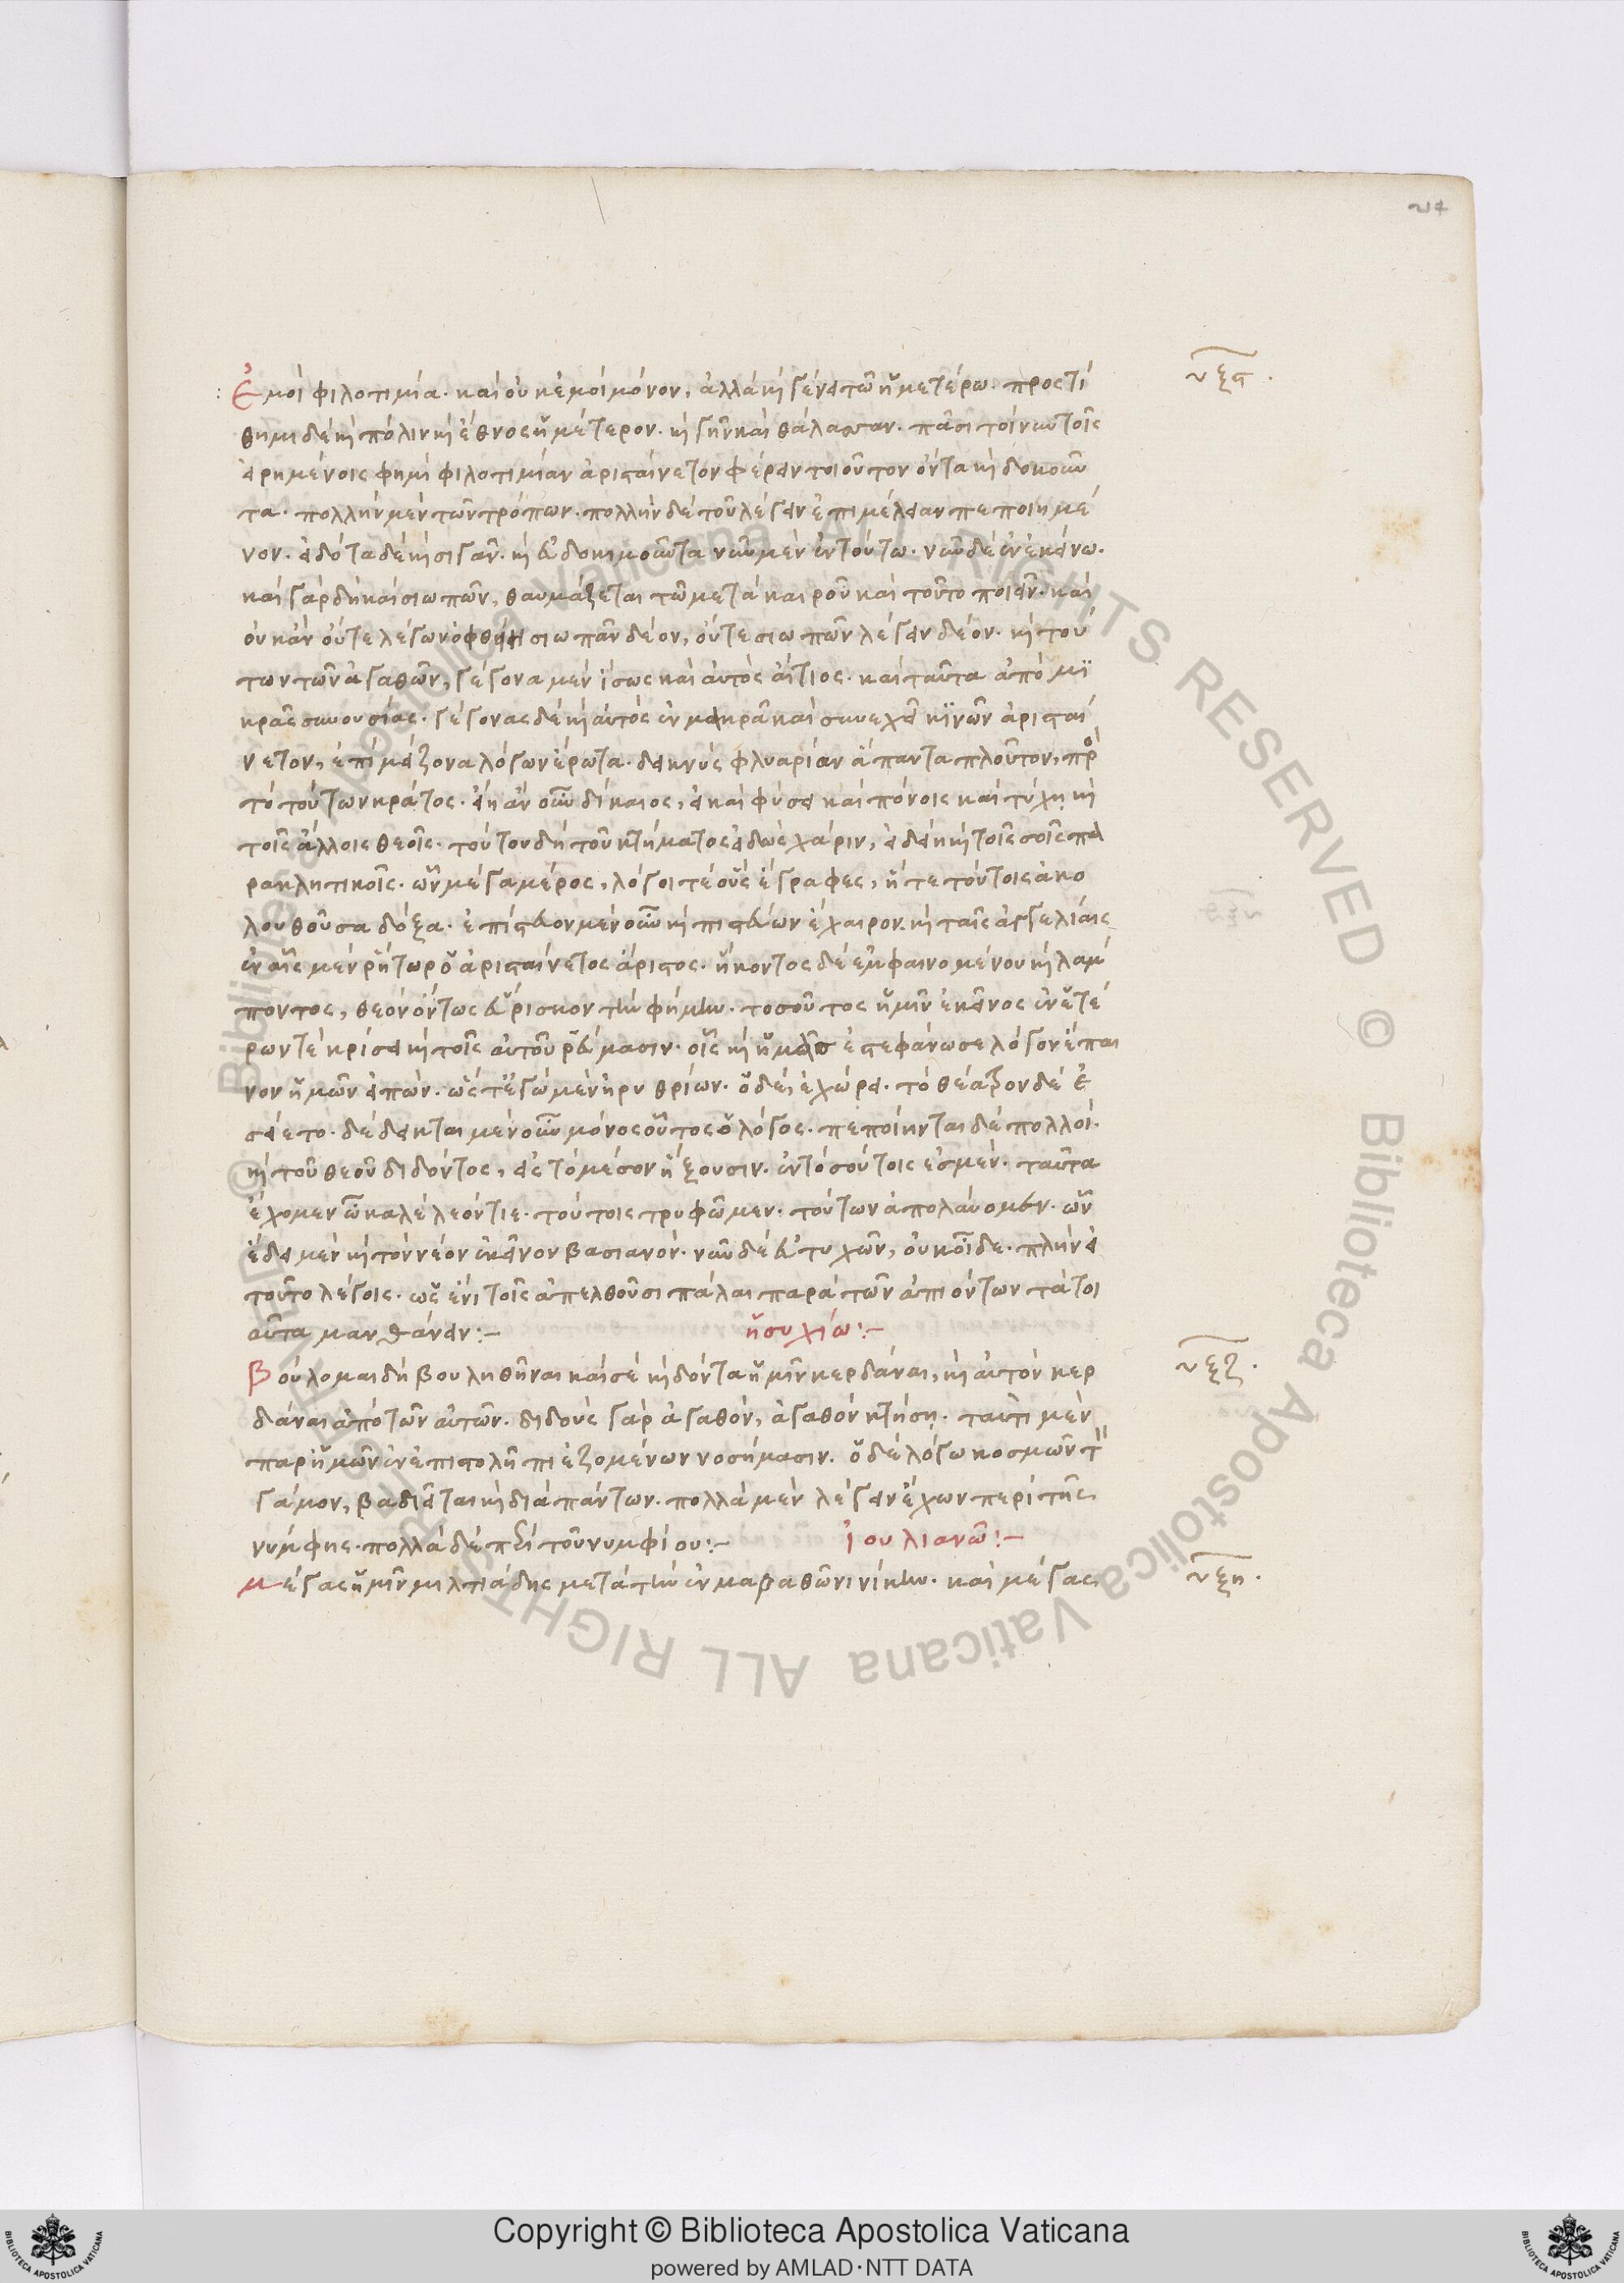 214
Ἐμοὶ φιλοτιμία· καὶ οὐκ ἐμοὶ μόνον, ἀλλὰ καὶ γένει τῶ ἡμετέρω· προστί υξϛ·
θημι δὲ καὶ πόλιν καὶ ἔθνος ἡμέτερον· καὶ γῆν καὶ θάλατταν· πᾶσι τοίνυν τοῖς
εἰρημένοις φημὶ φιλοτιμίαν ἀρισταίνετον φέρειν τοιοῦτον ὄντα καὶ δοκοῦν
τα· πολλὴν μὲν τῶν τρόπων· πολλὴν δὲ τοῦ λέγειν ἐπιμέλειαν πεποιημέ
νον· εἰδότα δὲ καὶ σιγᾶν· καὶ εὐδοκιμοῦντα νῦν μὲν ἐν τούτω· νῦν δὲ ἐν ἐκείνω·
καὶ γὰρ δὴ καὶ σιωπῶν, θαυμάζεται τῶ μετὰ καιροῦ καὶ τοῦτο ποιεῖν· καὶ
οὐκ ἂν οὔτε λέγων ὀφθείη σιωπᾶν δέον, οὔτε σιωπῶν λέγειν δέον· καὶ τού
των τῶν ἀγαθῶν, γέγονα μὲν ἴσως καὶ αὐτὸς αἴτιος· καὶ ταῦτα ἀπὸ μι
κρᾶς συνουσίας· γέγονας δὲ καὶ αὐτὸς ἐν μακρᾶ καὶ συνεχεῖ κινῶν ἀρισταί
νετον, ἐπὶ μείζονα λόγων ἔρωτα· δεικνὺς φλυαρίαν ἅπαντα πλοῦτον, πρὸς
τὸ τούτων κράτος· εἴη ἂν οὖν δίκαιος, εἰ καὶ φύσει καὶ πόνοις καὶ τύχη καὶ
τοῖς ἄλλοις θεοῖς· τούτου δὴ τοῦ κτήματος εἰδὼς χάριν, εἰδείη καὶ τοῖς σοῖς πα
ρακλητικοῖς· ὧν μέγα μέρος, λόγοι τε οὓς ἔγραφες, ἥ τε τούτοις ἀκο
λουθοῦσα δόξα· ἐπίστευον μὲν οὖν καὶ πιστεύων ἔχαιρον· καὶ ταῖς ἀγγελίαις
ἐν αἷς μὲν ῥήτωρ ὁ ἀρισταίνετος ἄριστος· ἥκοντος δὲ ἐμφαινομένου καὶ λάμ
ποντος, θεὸν ὄντως εὕρισκον τὴν φήμην· τοσοῦτος ἡμῖν ἐκεῖνος ἐν ἑτέ
ρων τε κρίσει καὶ τοῖς αὐτοῦ ῥεύμασιν· οἷς καὶ ἡμᾶς ἐστεφάνωσε λόγον ἔπαι
νον ἡμῶν εἰπών· ὥστ' ἐγὼ μὲν ἠρυθρίων· ὁ δὲ, ἐχώρει· τὸ θέατρον δὲ ἐ
σείετο· δέδεικται μὲν οὖν μόνος οὗτος ὁ λόγος· πεποίηνται δὲ πολλοί·
καὶ τοῦ θεοῦ διδόντος, εἰς τὸ μέσον ἥξουσιν· ἐν τοσούτοις ἐσμέν· ταῦτα
ἔχομεν ὦ καλὲ λεόντιε· τούτοις τρυφῶμεν· τούτων ἀπολαύομεν· ὧν
ἔδει μὲν καὶ τὸν νέον ἐκεῖνον βασιανόν· νῦν δὲ εὐτυχῶν, οὐκ οἶδε· πλὴν εἰ
τοῦτο λέγοις· ὡς ἔνι τοῖς ἀπελθοῦσι πάλαι παρὰ τῶν ἀπιόντων τὰ τοι
αῦτα μανθάνειν:– ἡσυχίω:–
Βούλομαι δὴ βουληθῆναι καὶ σὲ καὶ δόντα ἡμῖν κερδᾶναι, καὶ αὐτὸν κερ υξζ·
δᾶναι ἀπὸ τῶν αὐτῶν· διδοὺς γὰρ ἀγαθόν, ἀγαθὸν κτήση· ταυτὶ μὲν
παρ' ἡμῶν ἐν ἐπιστολῆ πιεζομένων νοσήμασιν· ὁ δὲ λόγω κοσμῶν τὸν
γάμον, βαδιεῖται καὶ διὰ πάντων· πολλὰ μὲν λέγειν ἔχων περὶ τῆς
νύμφης· πολλὰ δὲ περὶ τοῦ νυμφίου:– Ἰουλιανῶ:–
Μέγας ἡμῖν μιλτιάδης μετὰ τὴν ἐν μαραθῶνι νίκην· καὶ μέγας υξη·
Copyright © Biblioteca Apostolica Vaticana
powered by AMLAD·NTT DATA